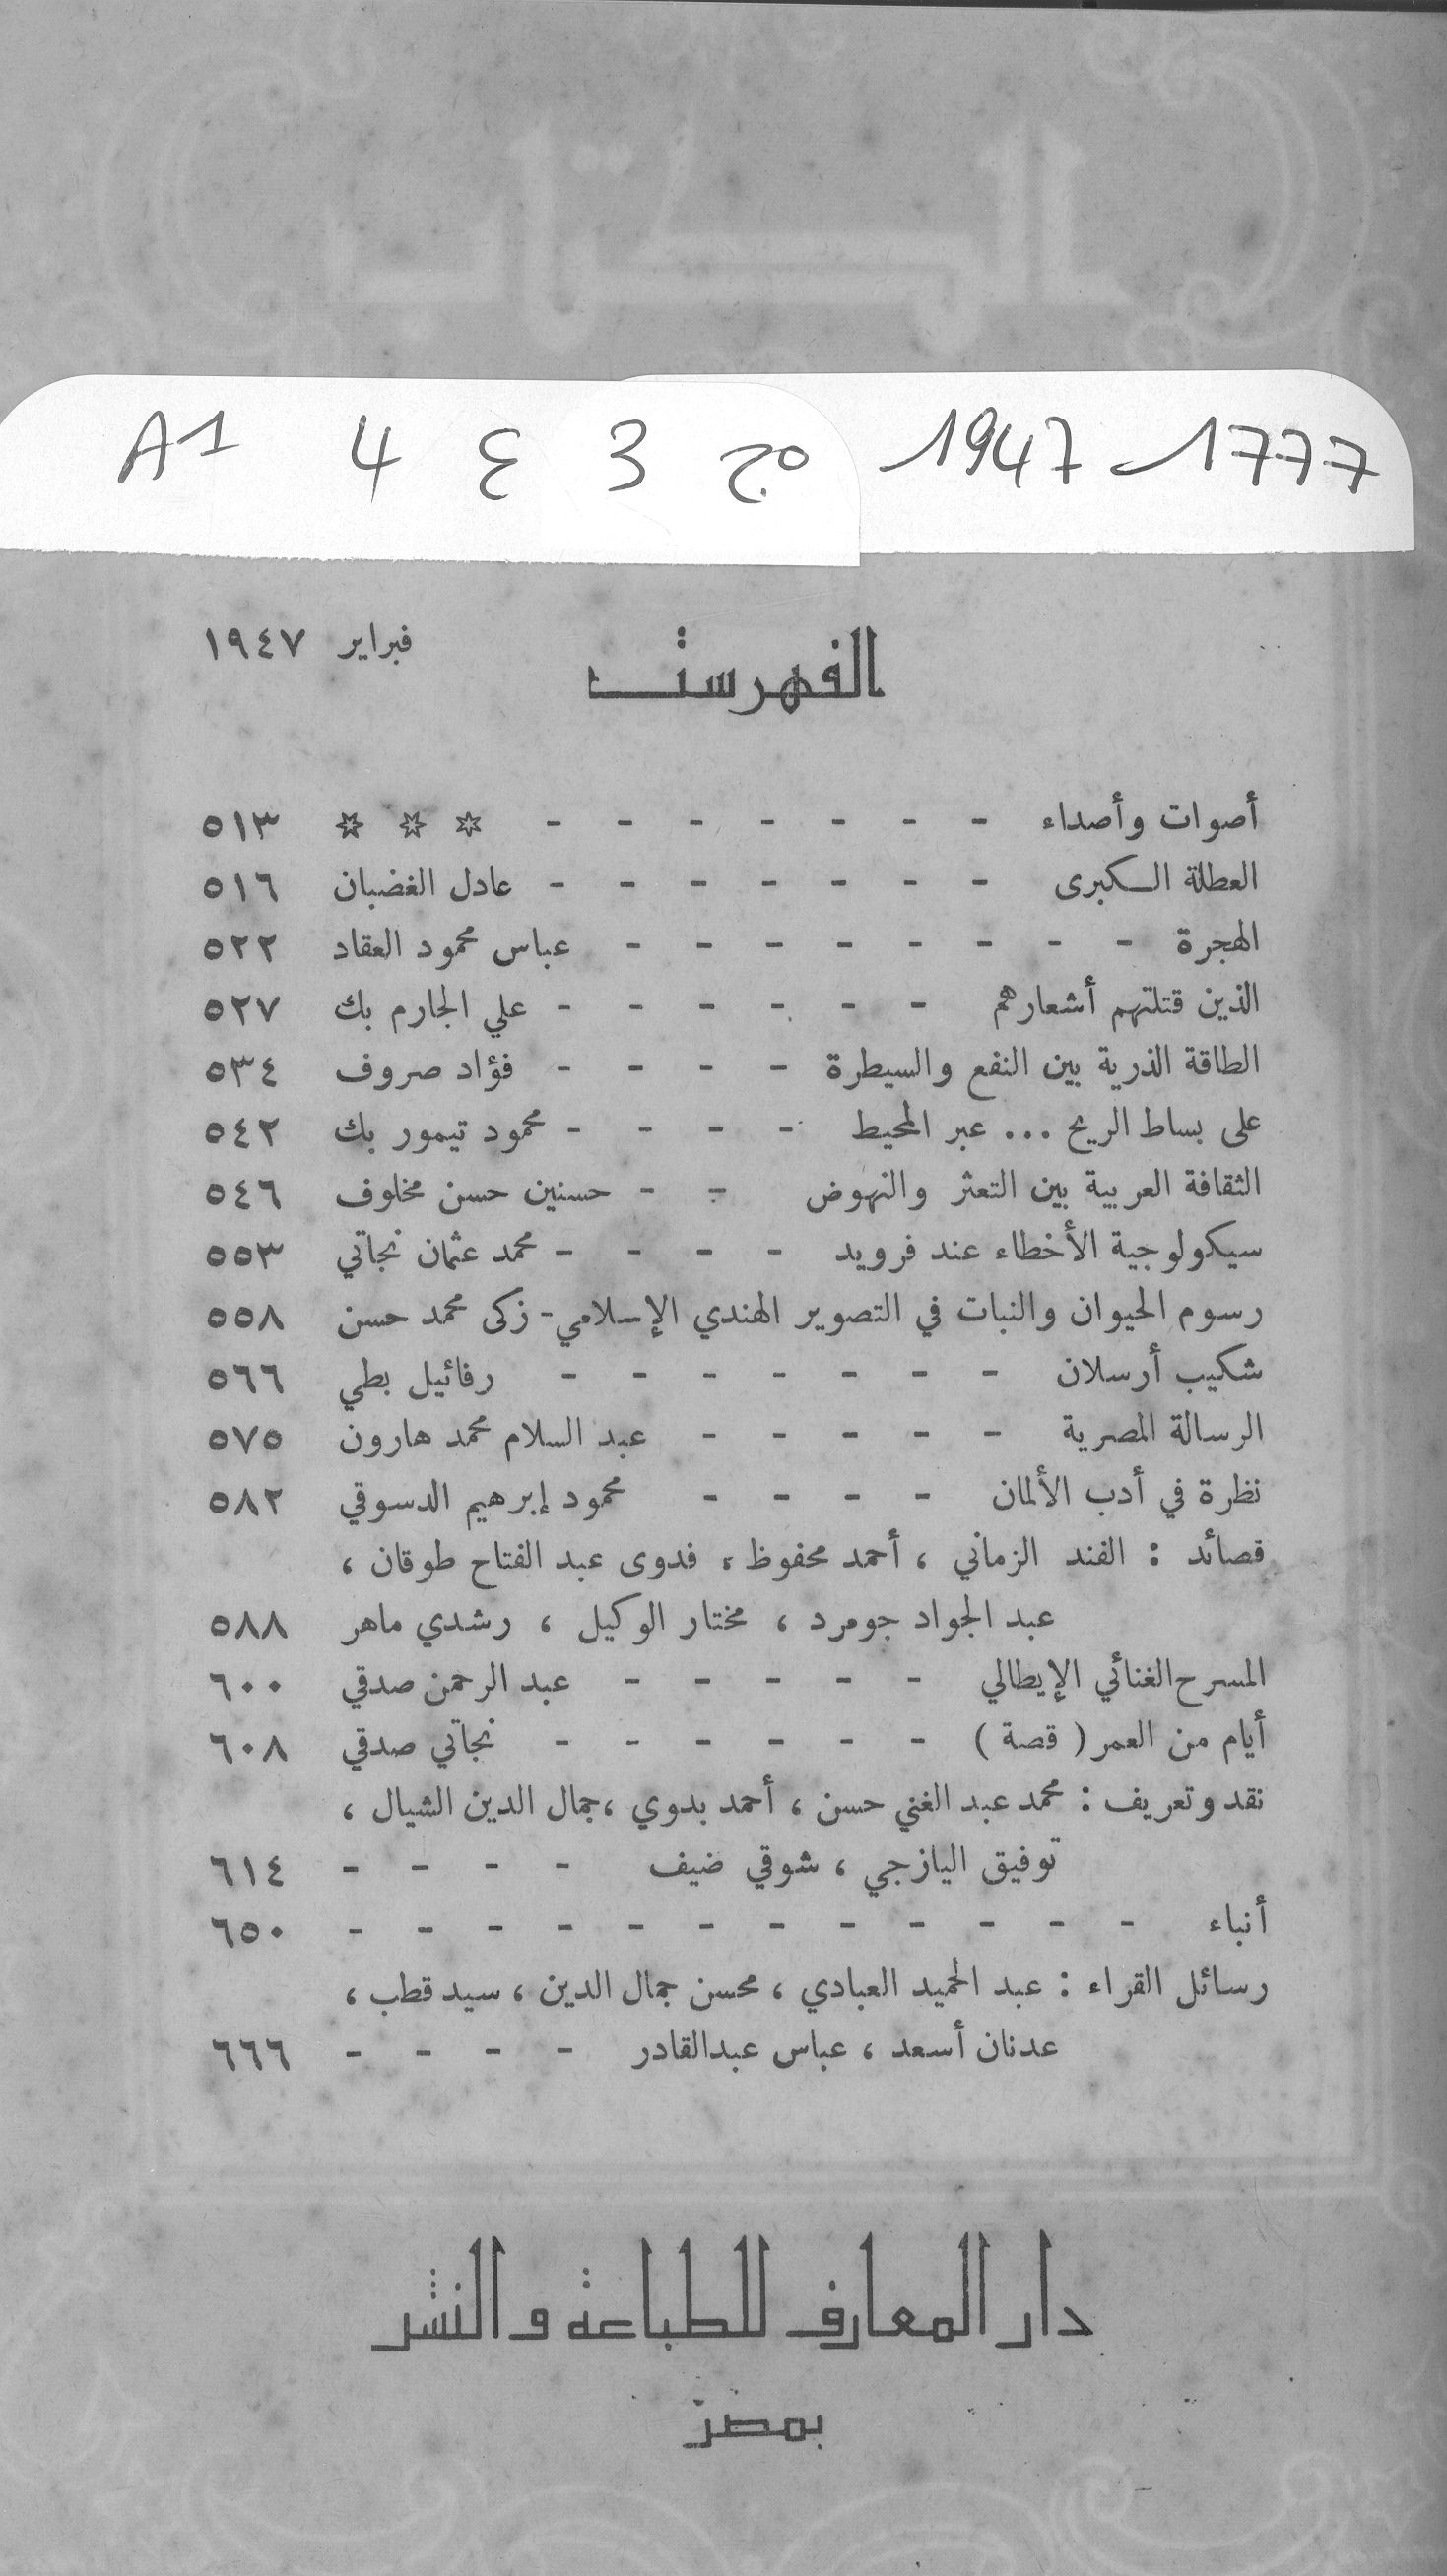 الكتاب
1777 1947 مج 3 ع 4 A1
الفهرست
فبراير ١٩٤٧
أصوات وأصداء - - - - - - - ☆ ☆ ☆ ٥١٣
العطلة الكبرى - - - - - - - عادل الغضبان ٥١٦
الهجرة - - - - - - - - عباس محمود العقاد ٥٢٢
الذين قتلتهم أشعارهم - - - - - - علي الجارم بك ٥٢٧
الطاقة الذرية بين النفع والسيطرة - - - - فؤاد صروف ٥٣٤
على بساط الريح ... عبر المحيط - - - - محمود تيمور بك ٥٤٢
الثقافة العربية بين التعثر والنهوض - - حسنين حسن مخلوف ٥٤٦
سيكولوجية الأخطاء عند فرويد - - - - محمد عثمان نجاتي ٥٥٣
رسوم الحيوان والنبات في التصوير الهندي الإسلامي - زكى محمد حسن ٥٥٨
شكيب أرسلان - - - - - - - رفائيل بطي ٥٦٦
الرسالة المصرية - - - - - عبد السلام محمد هارون ٥٧٥
نظرة في أدب الألمان - - - - محمود إبرهيم الدسوقي ٥٨٢
قصائد : الفند الزماني ، أحمد محفوظ ، فدوى عبد الفتاح طوقان ،
عبد الجواد جومرد ، مختار الوكيل ، رشدي ماهر ٥٨٨
المسرح الغنائي الإيطالي - - - - - عبد الرحمن صدقي ٦٠٠
أيام من العمر ( قصة ) - - - - - - نجاتي صدقي ٦٠٨
نقد وتعريف : محمد عبد الغني حسن ، أحمد بدوي ، جمال الدين الشيال ،
توفيق اليازجي ، شوقي ضيف - - - - ٦١٤
أنباء - - - - - - - - - - - - ٦٥٠
رسائل القراء : عبد الحميد العبادي ، محسن جمال الدين ، سيد قطب ،
عدنان أسعد ، عباس عبدالقادر - - - - ٦٦٦
دار المعارف للطباعة والنشر
بمصر